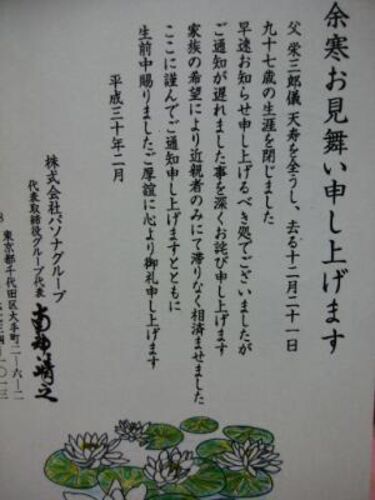 余寒お見舞い申し上げます
父 栄三郎儀 天寿を全うし、去る十二月二十一日
九十七歳の生涯を閉じました
早速お知らせ申し上げるべき処でございましたが
ご通知が遅れました事を深くお詫び申し上げます
家族の希望により近親者のみにて滞りなく相済ませました
ここに謹んでご通知申し上げますとともに
生前中賜りましたご厚誼に心より御礼申し上げます
平成三十年二月
株式会社パソナグループ
代表取締役グループ代表 南部靖之
東京都千代田区大手町二-六-二